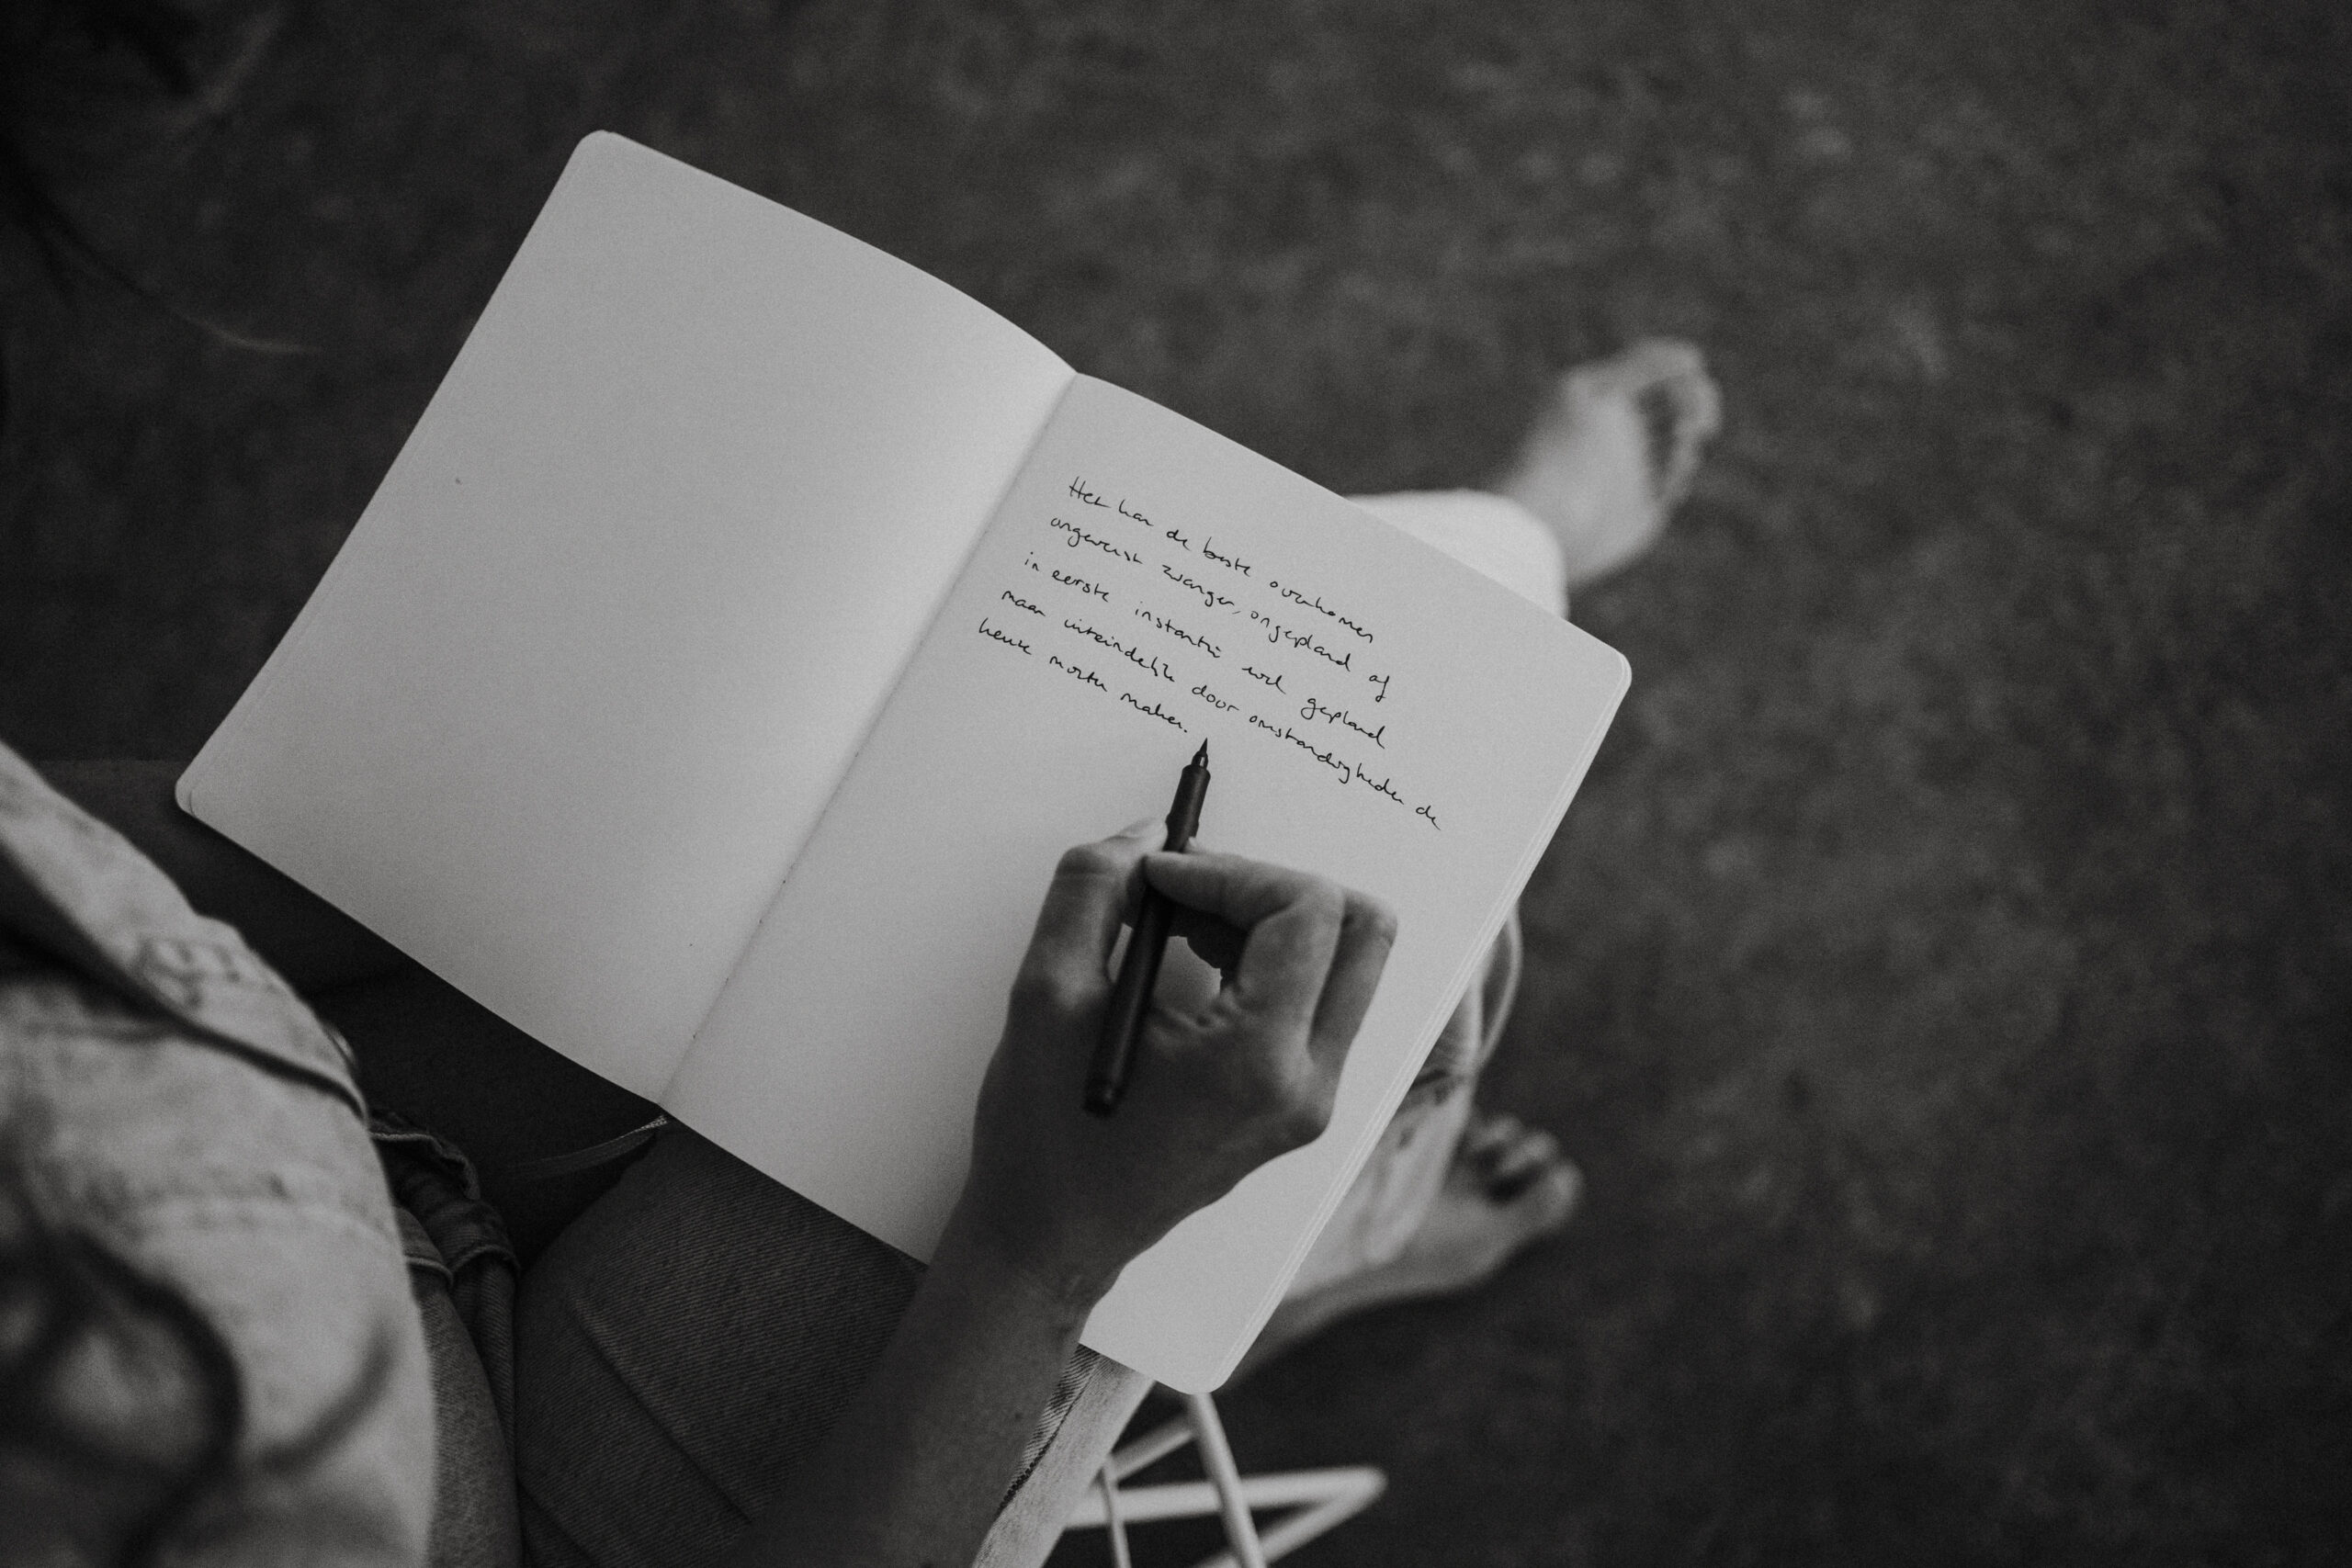 Het kan de beste overkomen
ongewenst zwanger, ongepland of
in eerste instantie wel gepland
maar uiteindelijk door omstandigheden de
keuze moeten maken.